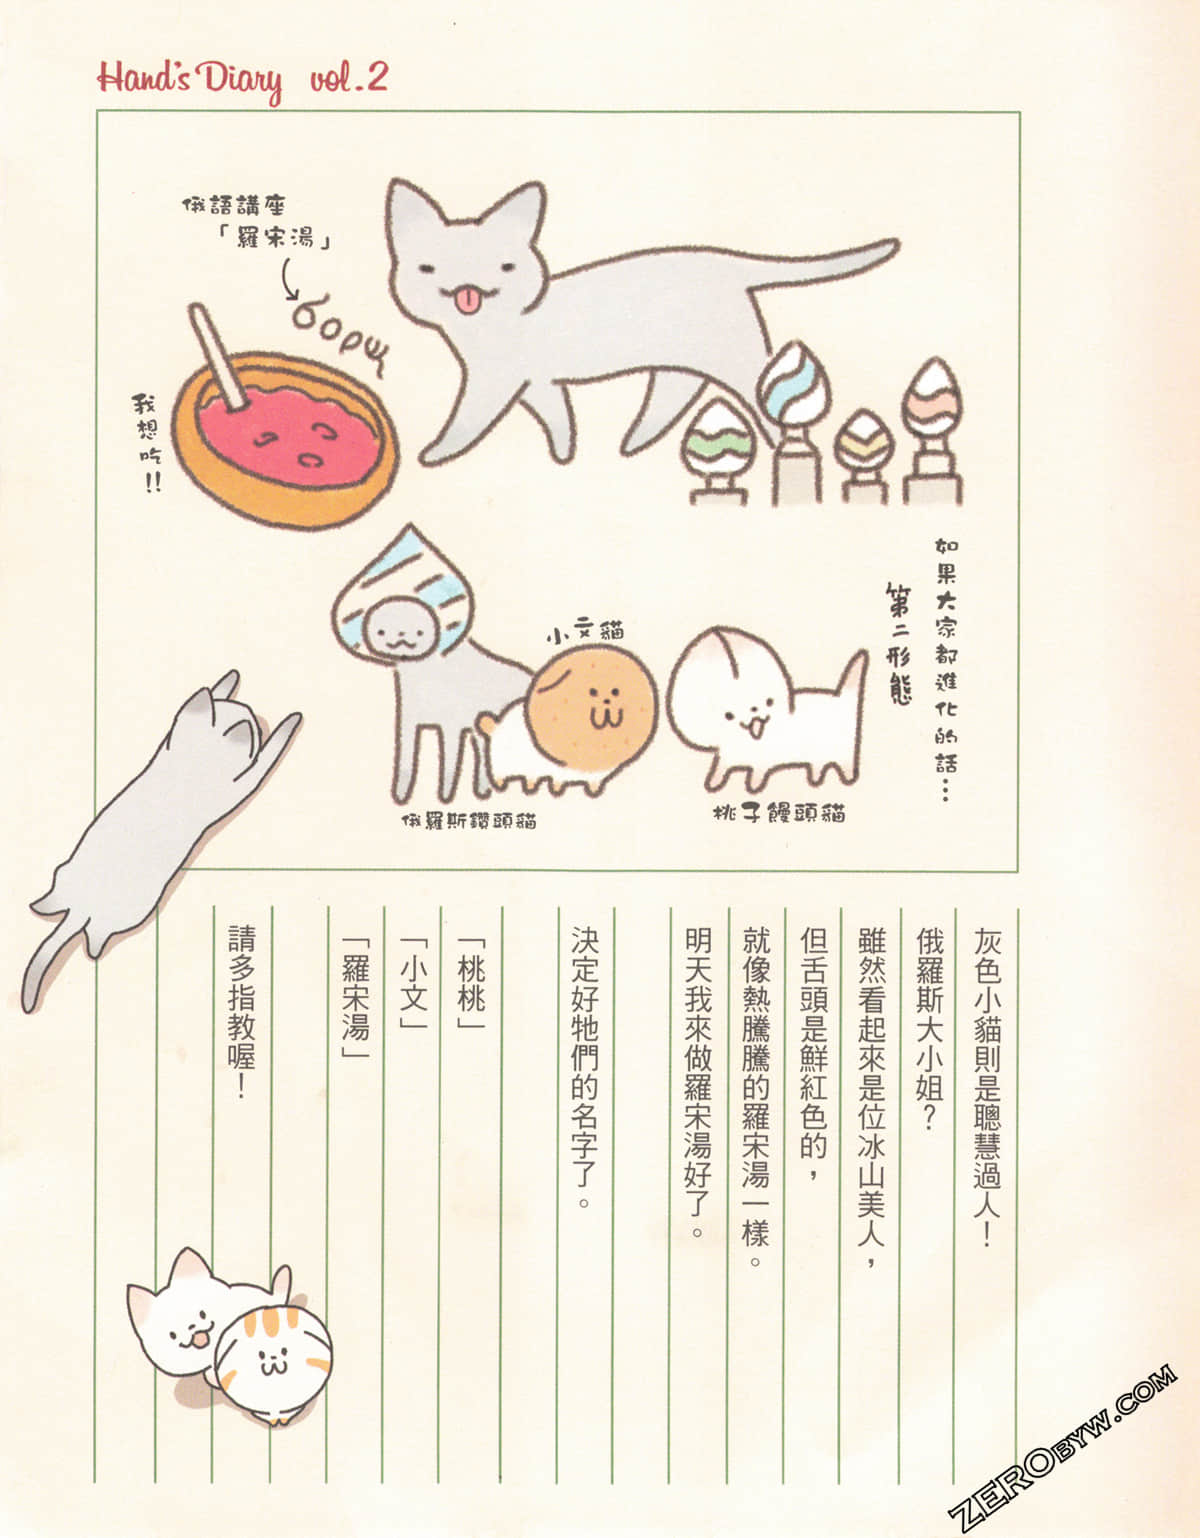 Hand's Diary vol.2
俄語講座
「羅宋湯」
борщ
我想吃!!
如果大家都進化的話…
第二形態
小文貓
俄羅斯鑽頭貓
桃子饅頭貓
灰色小貓則是聰慧過人！
俄羅斯大小姐？
雖然看起來是位冰山美人，
但舌頭是鮮紅色的，
就像熱騰騰的羅宋湯一樣。
明天我來做羅宋湯好了。
決定好牠們的名字了。
「桃桃」
「小文」
「羅宋湯」
請多指教喔！
ZEROBYW.COM